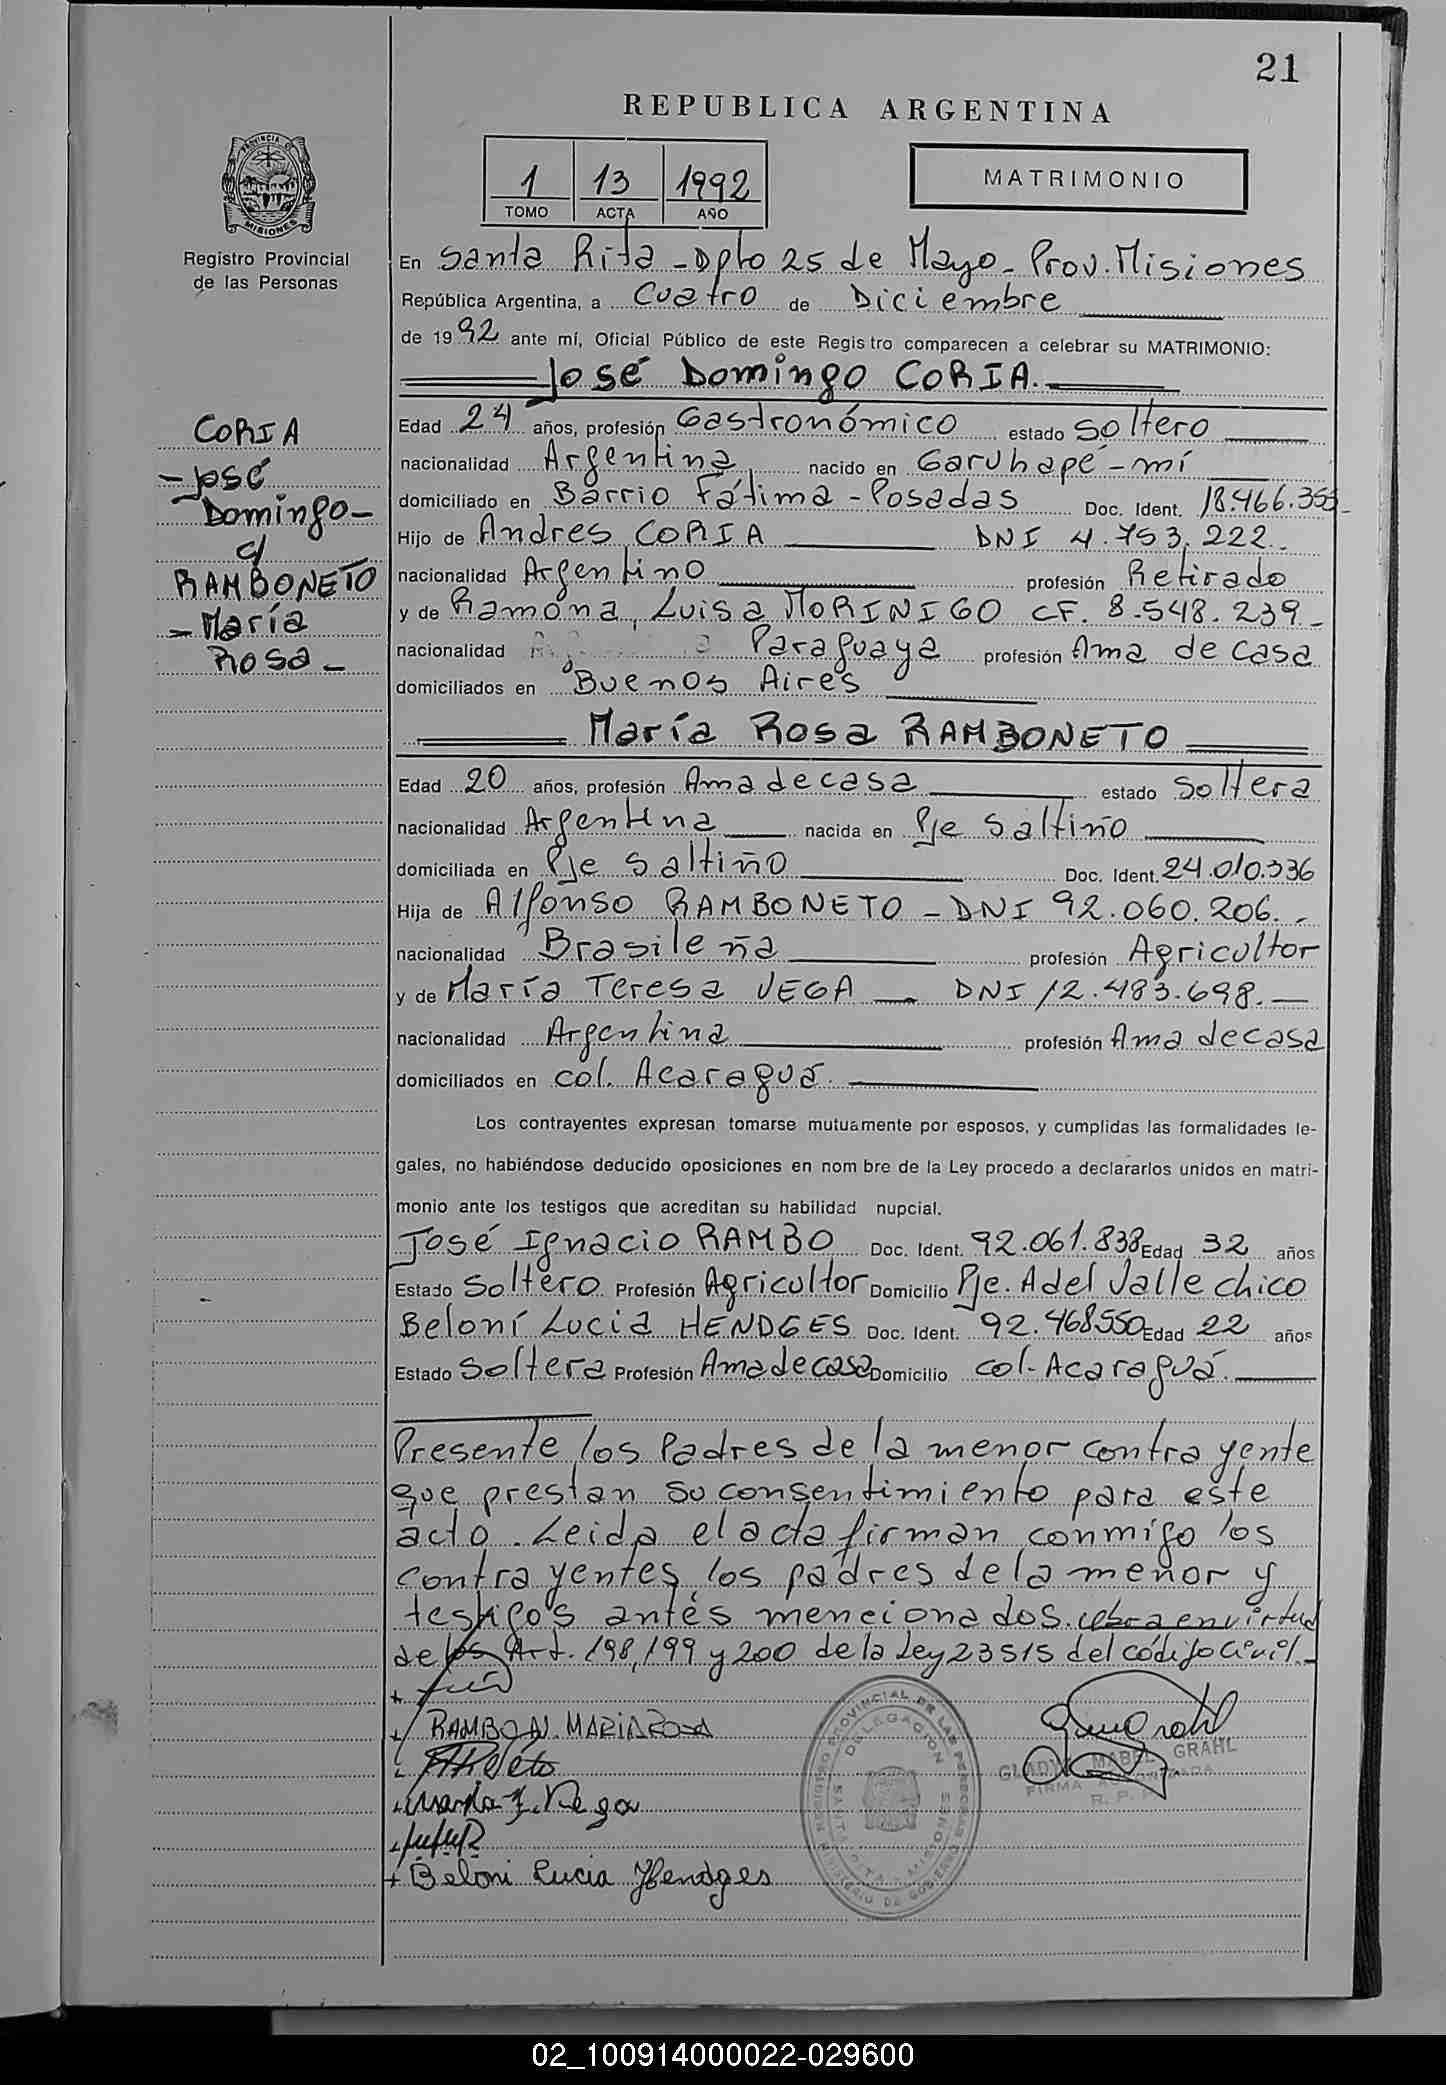 21
REPUBLICA ARGENTINA
PROVINCIA DE MISIONES
Registro Provincial
de las Personas
1 13 1992
TOMO ACTA AÑO
MATRIMONIO
En Santa Rita - Dpto 25 de Mayo - Prov. Misiones
República Argentina, a Cuatro de Diciembre
de 1992 ante mí, Oficial Público de este Registro comparecen a celebrar su MATRIMONIO:
José Domingo CORIA.
CORIA
- José
Domingo -
c/
RAMBONETO
- María
Rosa -
Edad 24 años, profesión Gastronómico estado soltero
nacionalidad Argentina nacido en Garuhapé-mí
domiciliado en Barrio Fátima - Posadas Doc. Ident. 18.466.355-
Hijo de Andres CORIA DNI 4.753.222.-
nacionalidad Argentino profesión Retirado
y de Ramona Luisa MORINIGO CF. 8.548.239.-
nacionalidad Paraguaya profesión Ama de casa
domiciliados en Buenos Aires
María Rosa RAMBONETO
Edad 20 años, profesión Ama de casa estado soltera
nacionalidad Argentina nacida en Pje Saltiño
domiciliada en Pje Saltiño Doc. Ident. 24.010.336
Hija de Alfonso RAMBONETO - DNI 92.060.206.-
nacionalidad Brasileña profesión Agricultor
y de María Teresa VEGA - DNI 12.483.698.-
nacionalidad Argentina profesión Ama de casa
domiciliados en col. Acaraguá.
Los contrayentes expresan tomarse mutuamente por esposos, y cumplidas las formalidades le-
gales, no habiéndose deducido oposiciones en nombre de la Ley procedo a declararlos unidos en matri-
monio ante los testigos que acreditan su habilidad nupcial.
José Ignacio RAMBO Doc. Ident. 92.061.838 Edad 32 años
Estado Soltero Profesión Agricultor Domicilio Pje. A del Valle chico
Beloní Lucia HENDGES Doc. Ident. 92.468550 Edad 22 años
Estado Soltera Profesión Ama de casa Domicilio col. Acaraguá.
Presente los Padres de la menor contrayente
que prestan su consentimiento para este
acto. Leida el acta firman conmigo los
contrayentes, los padres de la menor y
testigos antés mencionados. en virtud
de los Art. 198, 199 y 200 de la Ley 23515 del código civil.-
RAMBON. MARIA ROSA
Beloni Lucia Hendges
REGISTRO PROVINCIAL DE LAS PERSONAS
DELEGACION
SANTA RITA - MISIONES
MINISTERIO DE GOBIERNO
GLADYS MABEL GRAHL
FIRMA AUTORIZADA
R. P. P.
02_100914000022-029600